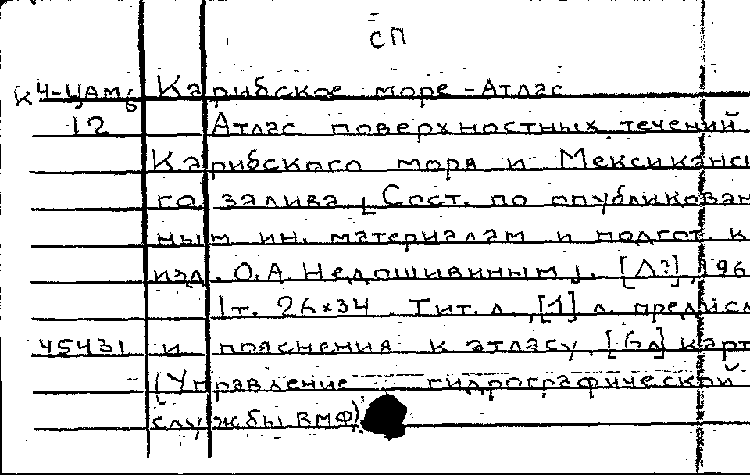 СП
К Ч-ЦАМб Карибское море - Атлас
12 Атлас поверхностных течений
Карибского моря и Мексиканс
го залива [Сост. по опубликован
ным ин. материалам и подгот. к
изд. О.А. Недошивиным]. [Л?], 196
1т. 26x34 Тит. л., [1] л. предисл
45431 и пояснения к атласу, [6л] карт
(Управление гидрографической
службы ВМФ)